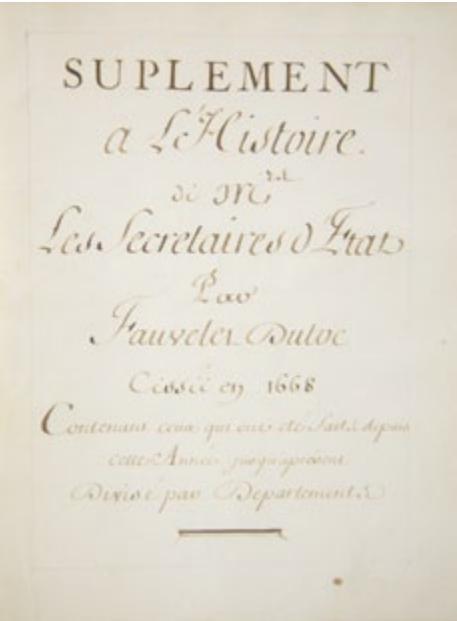 SUPLEMENT
a L'Histoire.
de Mrs
Les Secretaires d'Etat
Par
Fauvelet Dutoc
Cessée en 1668
Contenant ceux qui ont eté faits depuis
cette Année jusqu'apresent
Divisé par Departements